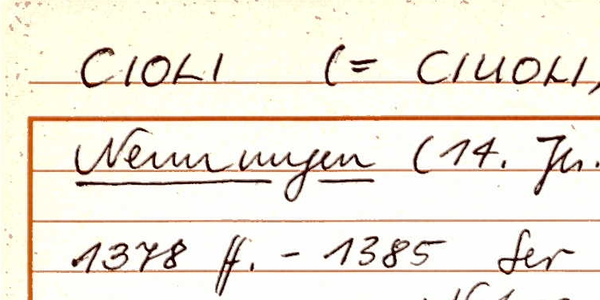 CIOLI (= CIUOLI,
Nennungen (14. Jh.
1378 ff. - 1385 Ser